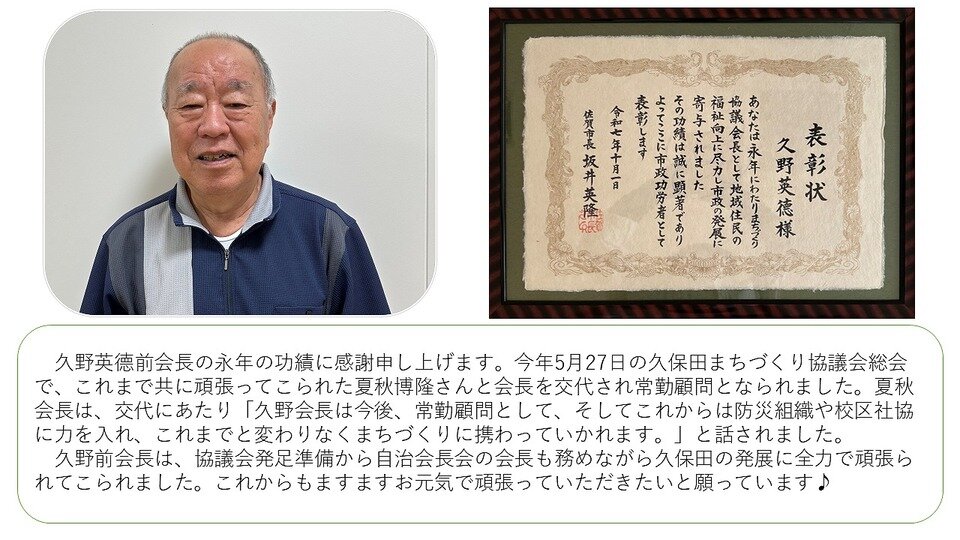 表彰状
久野英德様
あなたは永年にわたりまちづくり
協議会長として地域住民の
福祉向上に尽力し市政の発展に
寄与されました
その功績は誠に顕著であり
よってここに市政功労者として
表彰します
令和七年十月一日
佐賀市長 坂井英隆
久野英德前会長の永年の功績に感謝申し上げます。今年5月27日の久保田まちづくり協議会総会
で、これまで共に頑張ってこられた夏秋博隆さんと会長を交代され常勤顧問となられました。夏秋
会長は、交代にあたり「久野会長は今後、常勤顧問として、そしてこれからは防災組織や校区社協
に力を入れ、これまでと変わりなくまちづくりに携わっていかれます。」と話されました。
久野前会長は、協議会発足準備から自治会長会の会長も務めながら久保田の発展に全力で頑張ら
れてこられました。これからもますますお元気で頑張っていただきたいと願っています♪